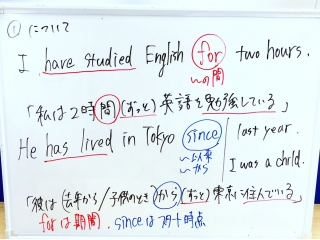 ① について
I have studied English for two hours.
〜の間
「私は2時間(ずっと)英語を勉強している」
He has lived in Tokyo since last year.
〜以来
〜から
I was a child.
「彼は(去年から/子供のとき)から(ずっと)東京に住んでいる」
forは期間、sinceはスタート時点